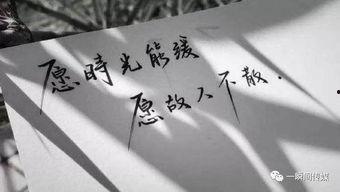 愿時光能缓
愿故人不散.
一瞬间传媒